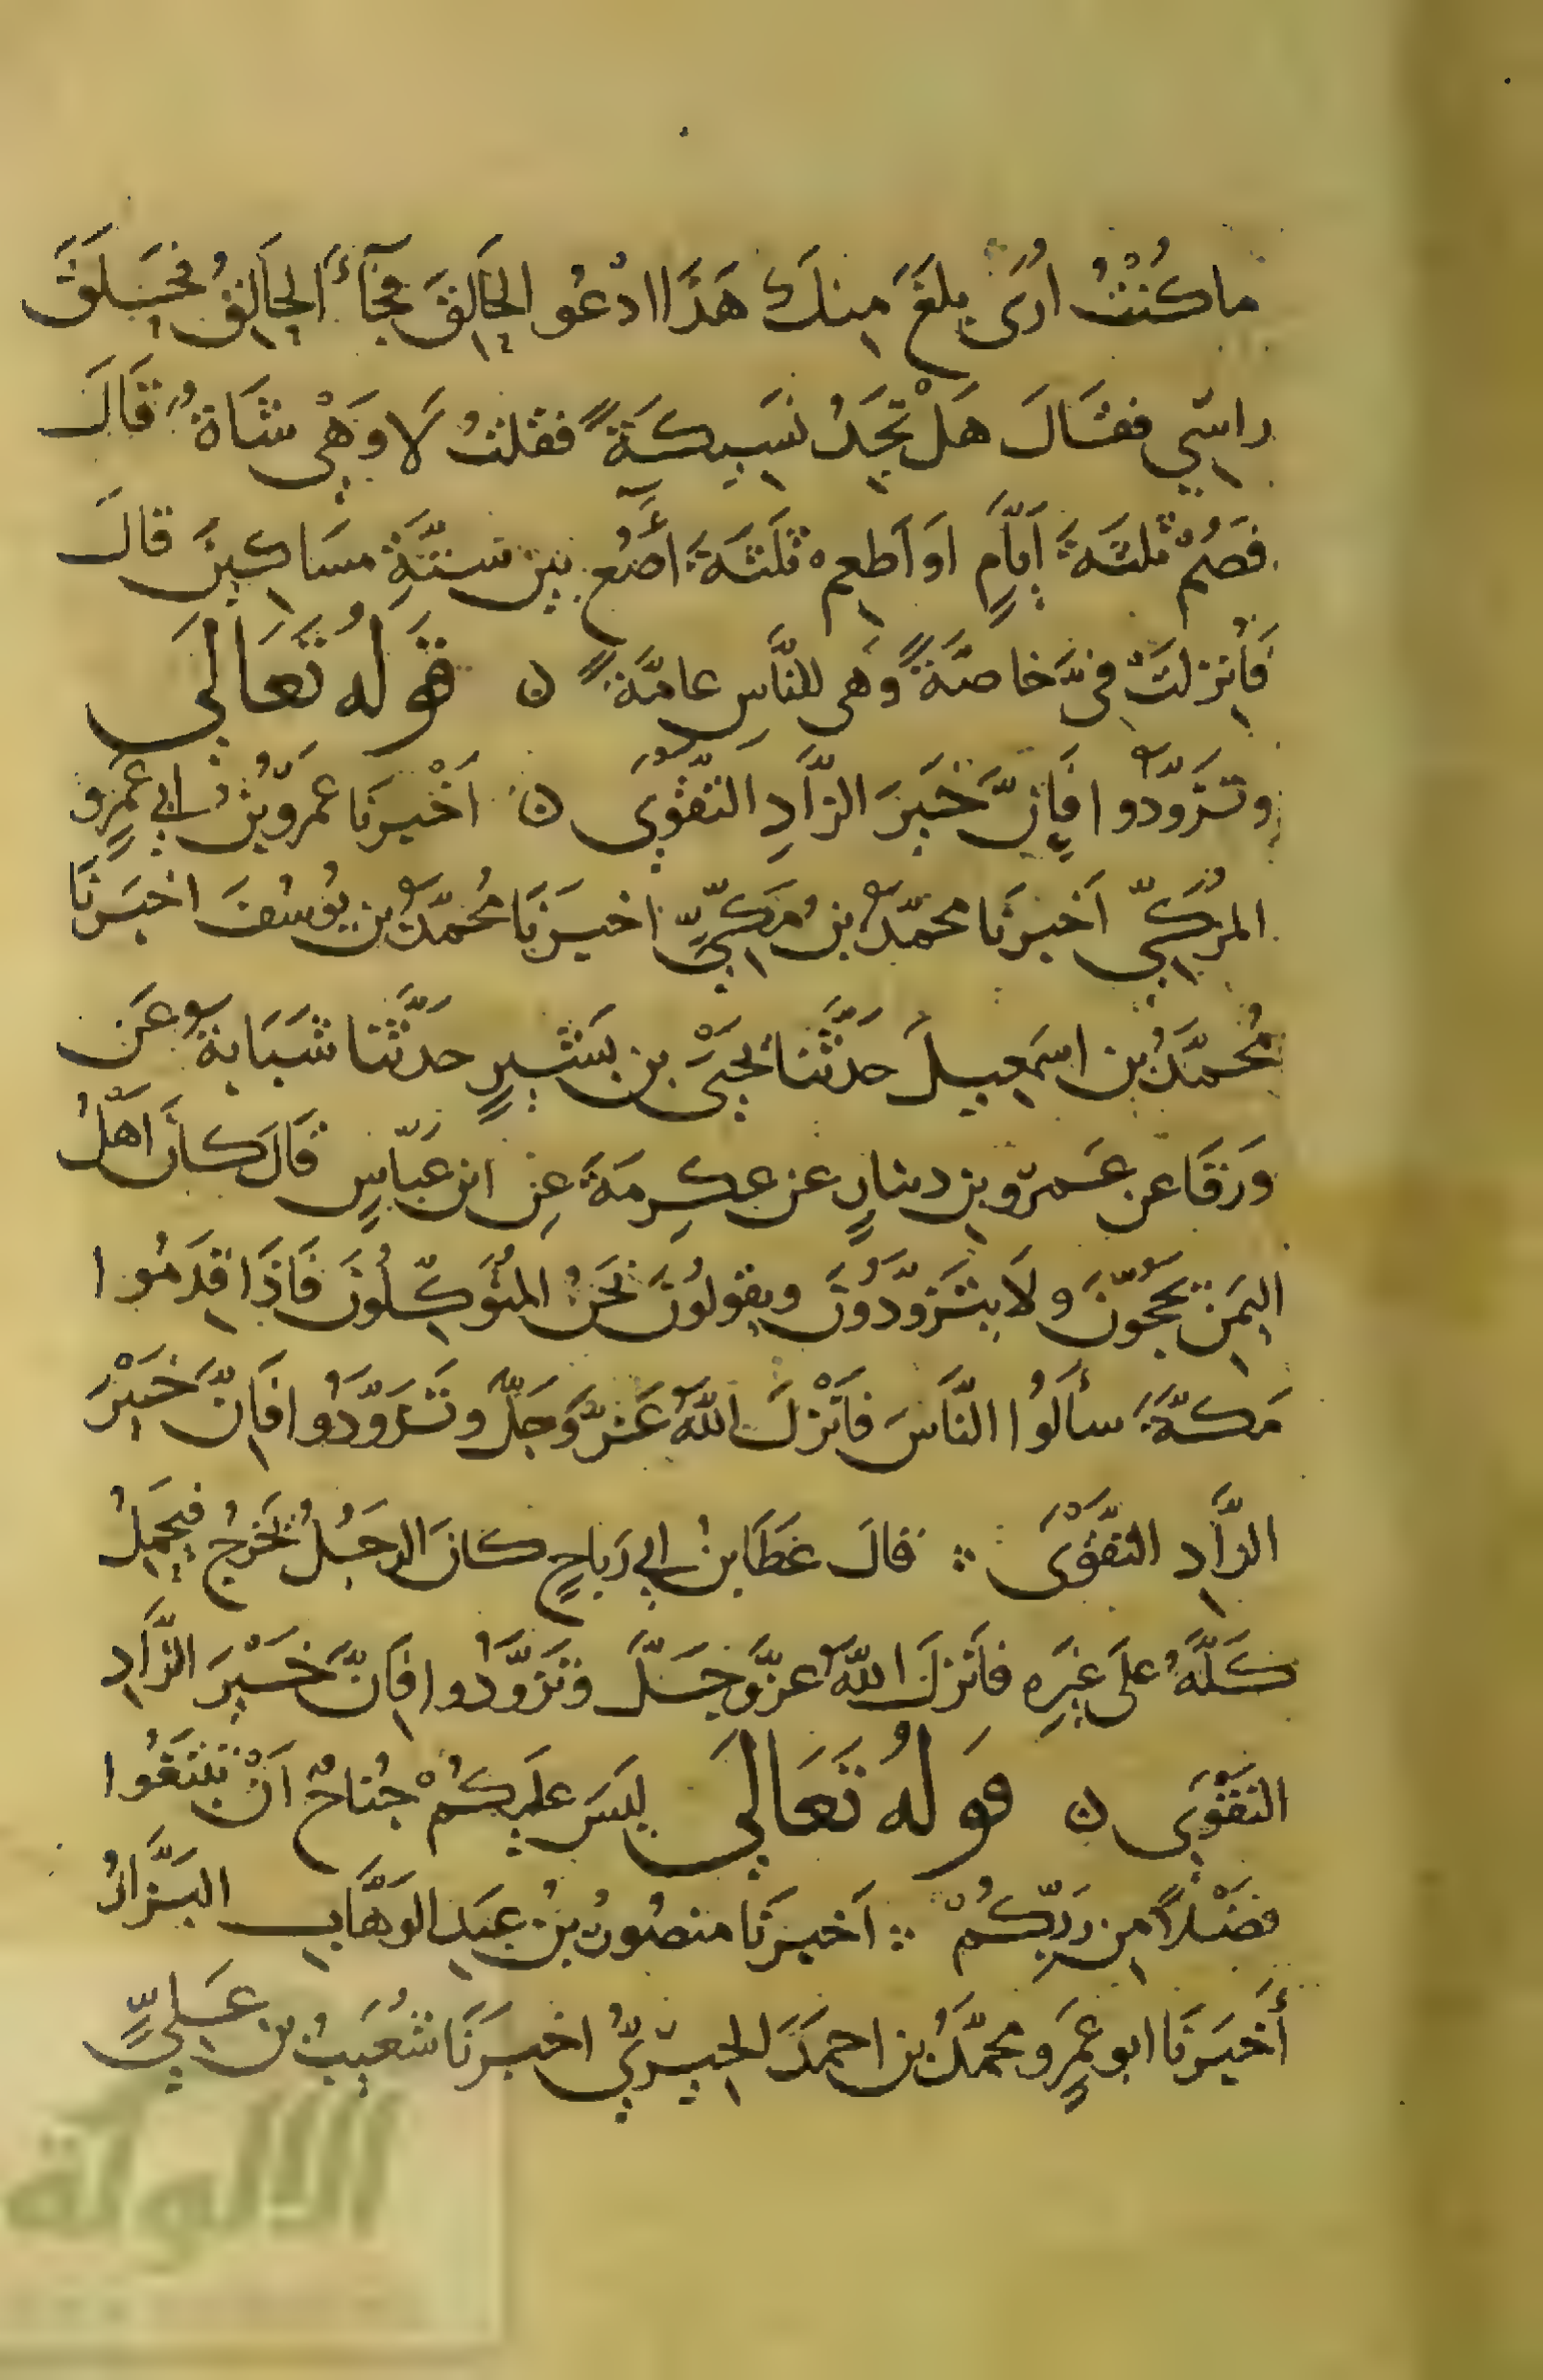 ما كُنْتُ اُرَىٰ بلغَ مِنكَ هَذَا ادْعُو الحَالِقَ فجآءَ الحَالِقُ فحَلَقَ
راسِي فقَالَ هَلْ تَجِدُ نَسِيكَةً فقلتُ لَا وَهْيَ شَاةٌ قَالَ
فصُمْ ثلثةَ اَيَّامٍ اَو اَطعِم ثلَثَةَ آصُعٍ بين ستَّةِ مسَاكِينَ قالَ
فَاُنزِلَتْ فِيَّ خاصَّةً وَهى للنَّاسِ عامَّةً ن قَولُهُ تَعَالَى
وتَزَوَّدُوا فَإِنَّ خَيرَ الزَّادِ التَّقْوٰى ن اَخْبرنَا عَمرُو بْنُ ابي عَمرٍو
المُزَكِّي اَخبرنَا محمّدُ بن مَكِّيٍّ اخبرَنَا مُحمَّدُ بن يُوسُفَ اخبَرنَا
مُحمَّدُ بن اسمَعِيلَ حَدَّثَنا يَحْيَى بن بِشْرٍ حدَّثنا شَبَابةُ عَن
وَرقَا عن عَمرِو بنِ دينارٍ عن عِكرِمَةَ عنِ ابن عبّاسٍ قَالَ كانَ اَهْلُ
اليَمَنِ يَحجُّونَ ولَا يتَزوَّدُونَ ويقولُونَ نَحنُ المُتوَكِّلُونَ فَاذَا قدِمُوا
مَكَّةَ سأَلُوا النَّاسَ فاَنْزلَ اللّهُ عَزَّ وَجَلَّ وتَزَوَّدُوا فَاِنَّ خَيْرَ
الزَّادِ التَّقوَى قالَ عَطَا بنُ ابي رَباحٍ كانَ الرجُلُ يَخرُجُ فيَحمِلُ
كَلَّهُ على غيرِه فاَنزلَ اللّهُ عزّ وجَلَّ وتَزَوَّدُوا فِاَنَّ خَيْرَ الزَّادِ
التَّقوَى ن قَولُهُ تَعَالَى لَيسَ علَيكُمْ جُناحٌ اَنْ تبتَغُوا
فضْلًا مِن رَبِّكُمْ اَخبرنَا منصُورُ بنُ عبَدِ الوَهَّابِ البَزَّازُ
أَخبَرنَا ابو عَمرٍو محمَّدُ بن احمدَ الحِيرِيُّ اخبرنَا شُعَيبُ بن عَلِيٍّ
الألوكة